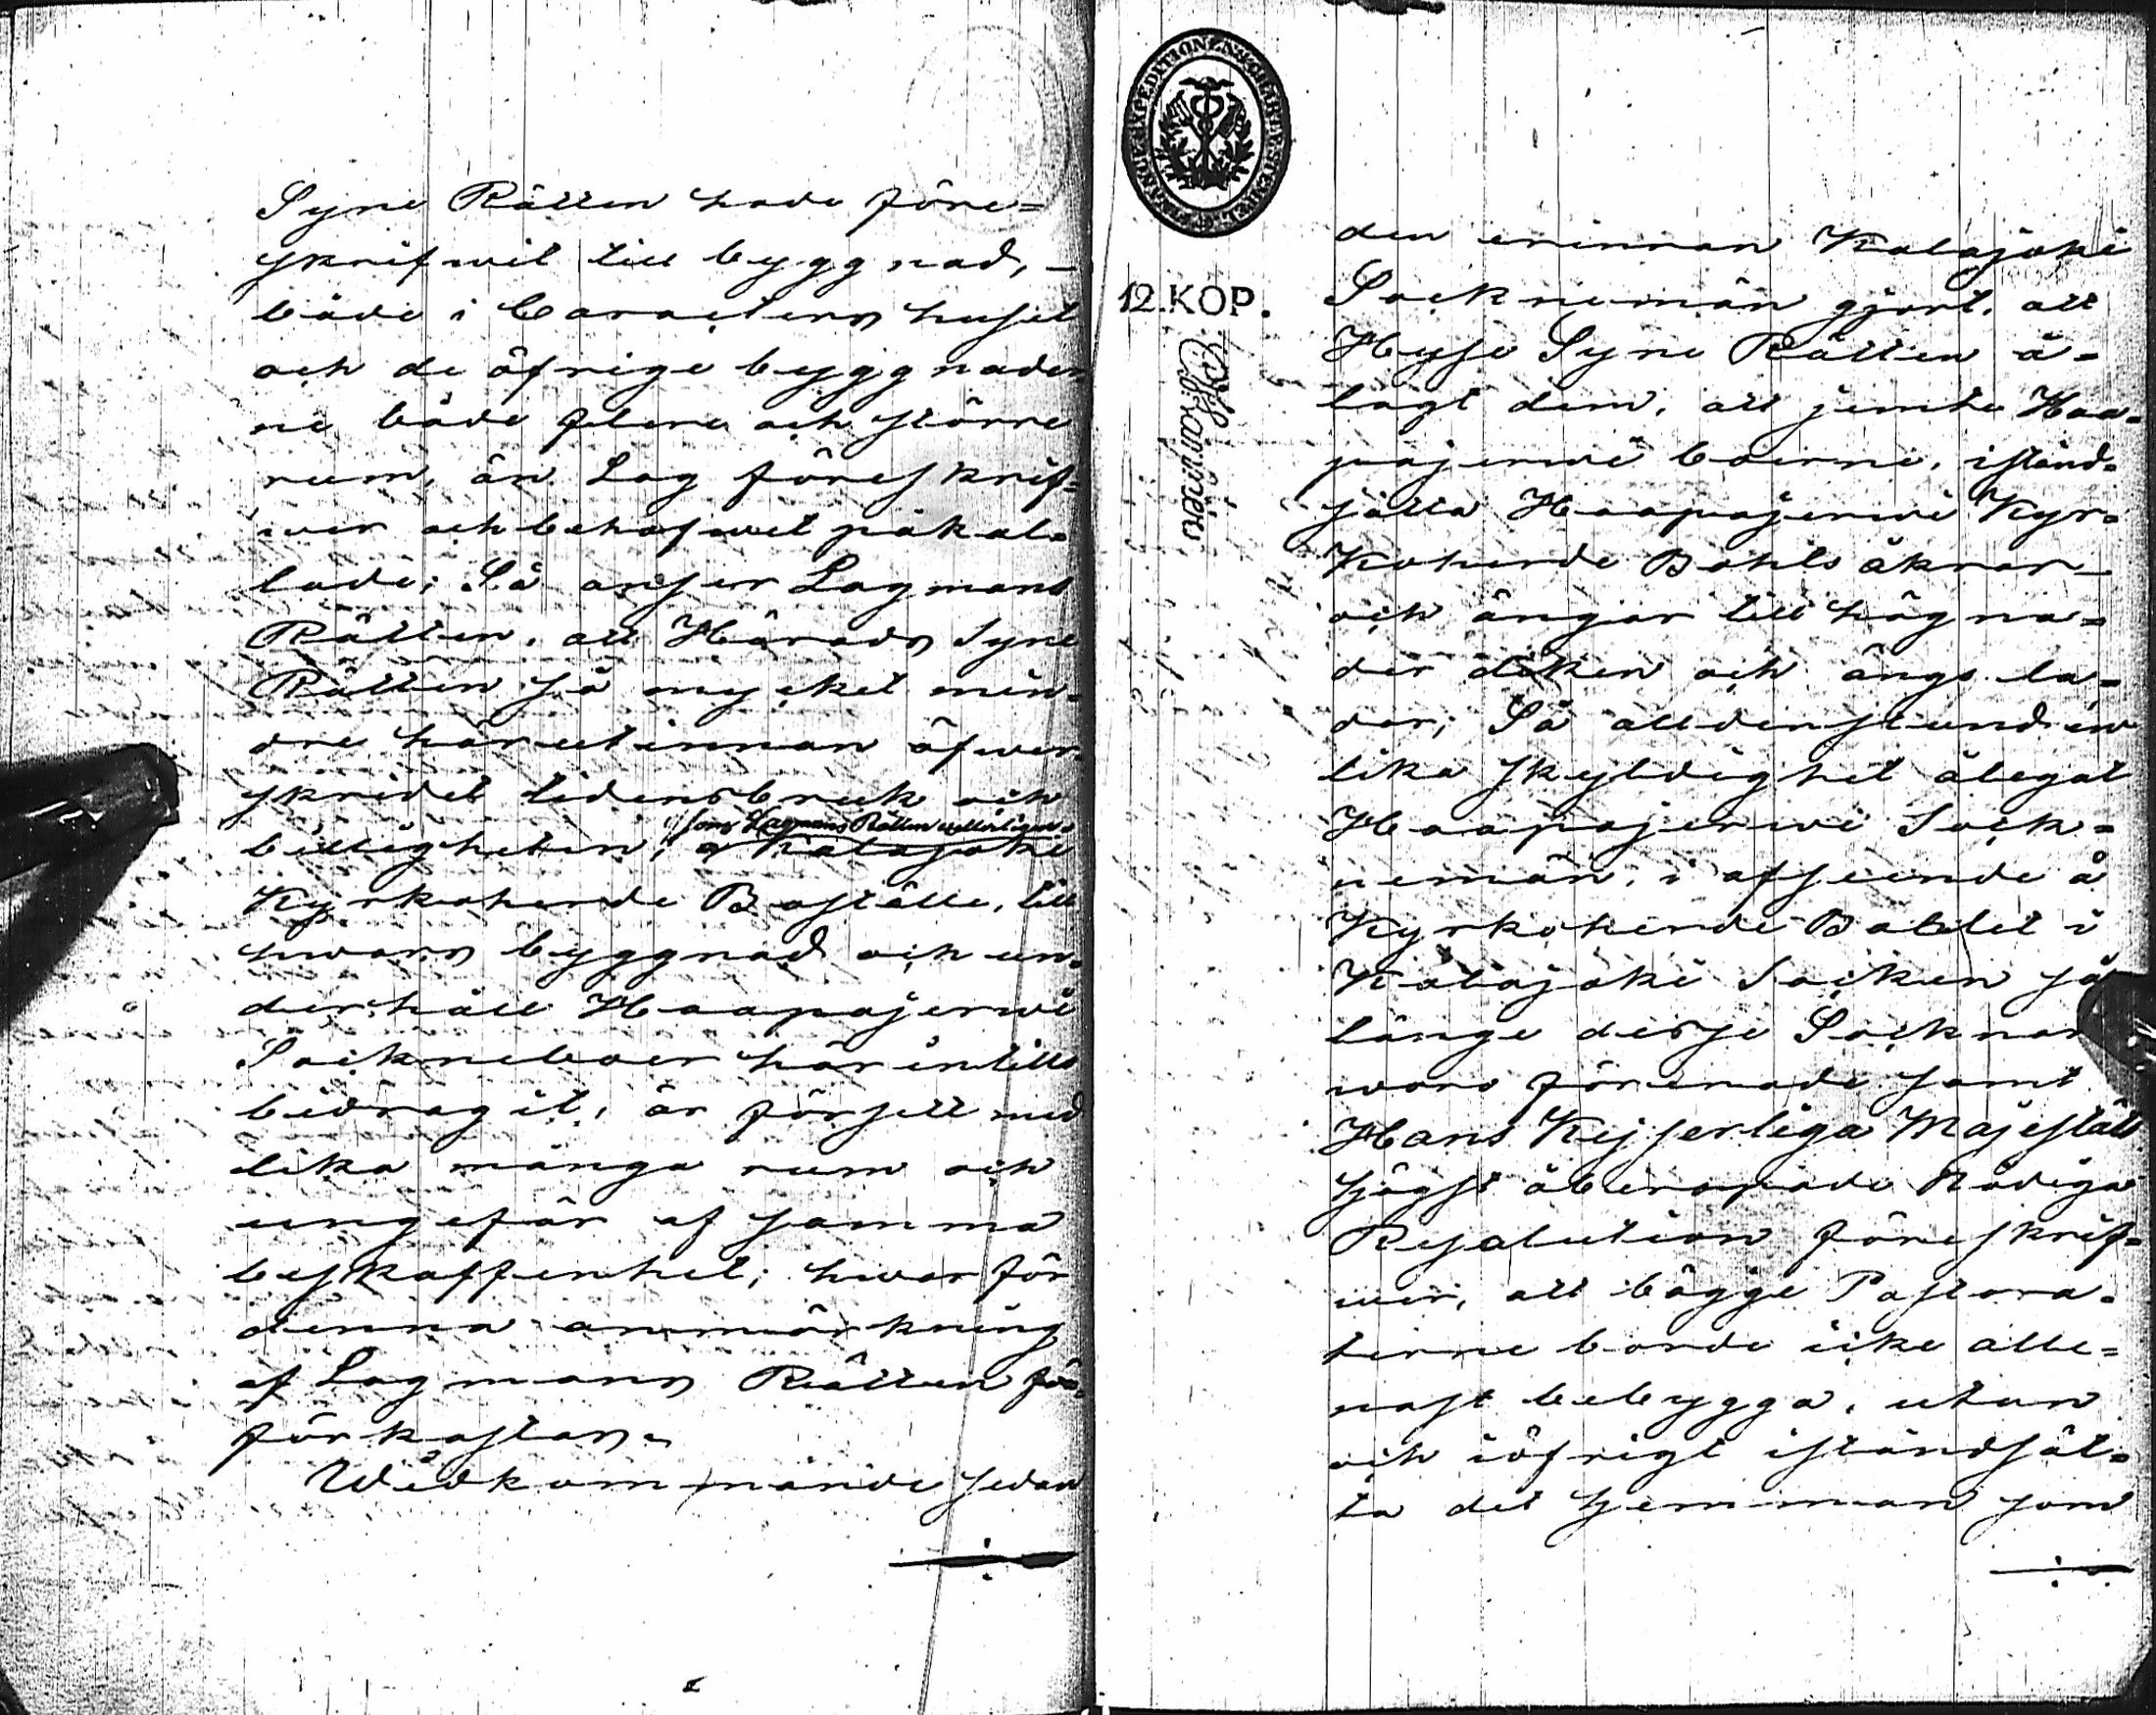 Syne Rätten hade före=
skrifwit till byggnad, –
både i Caracters huset
och de öfrige byggnader
ne både flere och större
rum, än Lag föreskrif=
wer och behofwet påkal=
lade; Så anser Lagmans
Rätten, att Härads Syne
Rätten så mycket min=
dre härutinnan öfwer
skridit tidens bruk och
som Lagmans Rätten ytterligare
billigheten, Kalajoki
Kyrkoherde Boställe, till
hwars byggnad och un=
derhåll Haapajerwi
Sockneboer här intills
bidragit, är försett med
lika många rum och
ungefär af samma
beskaffenhet; hwarför
denna anmärkning
af Lagmans Rätten för=
förkastas.
Widkommande sedan
12.KOP.
den erinran Kalajoki
Socknemän gjort, att
Hysse Syne Rätten å=
lagt dem, att jemte Haa=
pajerwi boerne, istånd=
sätta Haapajerwi Kyr=
koherde Bohls åkrar
och ängar till hägna=
der diken och ängs la=
dor; Så alldenstund en
lika skyldighet ålegat
Haapajerwi Sock=
nemän, i afseende å
Kyrkoherde Bohlet i
Kalajoki Socken så
länge desse Socknar
woro förenade samt
Hans Kejserliga Majestäts
högst åberopade Nådiga
Resolution föreskrif=
wer, att bägge Pastora=
terne borde icke alle=
nast bebygga, utan
och iöfrigt iståndsät=
ta det hemman som